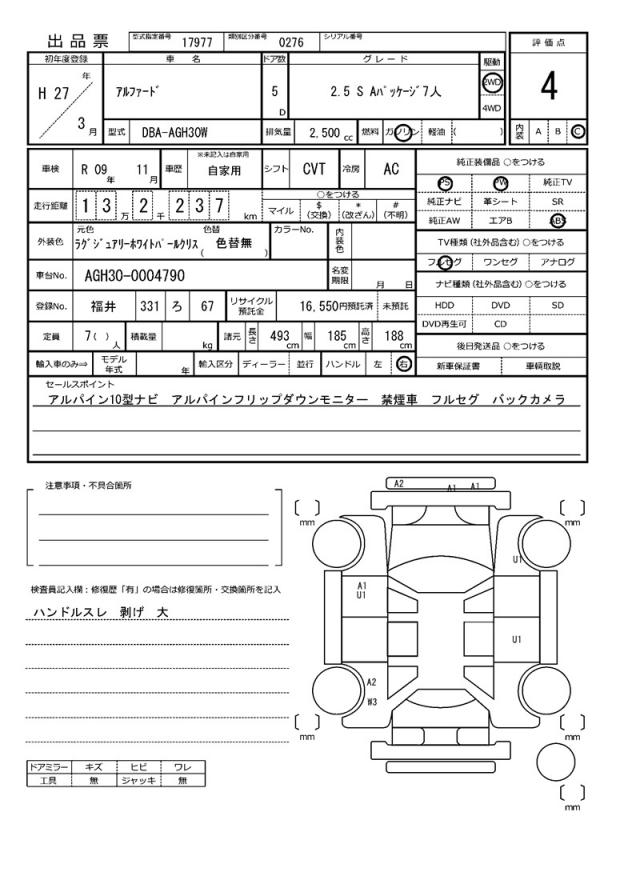 出品票 型式指定番号 17977 類別区分番号 0276 シリアル番号
初年度登録 車名 ドア数 グレード 駆動 評価点
H 27 年 3 月 アルファード 5 D 2.5 S Aパッケージ7人 2WD 4WD 4
型式 DBA-AGH30W 排気量 2,500 cc 燃料 ガソリン 軽油 ( ) 内装 A B C
車検 R 09 年 11 月 車歴 ※未記入は自家用 自家用 シフト CVT 冷房 AC 純正装備品 ○をつける
PS PW 純正TV
走行距離 1 3 万 2 千 2 3 7 km ○をつける 純正ナビ 革シート SR
マイル $ (交換) * (改ざん) # (不明) 純正AW エアB ABS
外装色 元色 ラグジュアリーホワイトパールクリス 色替 ( 色替無 ) カラーNo. 内装色 TV種類 (社外品含む) ○をつける
フルセグ ワンセグ アナログ
車台No. AGH30-0004790 名変期限 月 日 ナビ種類 (社外品含む) ○をつける
登録No. 福井 331 ろ 67 リサイクル預託金 16,550円預託済 未預託 HDD DVD SD
DVD再生可 CD
定員 7( ) 人 積載量 kg 諸元 長さ 493 cm 幅 185 cm 高さ 188 cm 後日発送品 ○をつける
輸入車のみ⇒ モデル年式 年 輸入区分 ディーラー 並行 ハンドル 左 右 新車保証書 車輌取説
セールスポイント
アルパイン10型ナビ アルパインフリップダウンモニター 禁煙車 フルセグ バックカメラ
注意事項・不具合箇所
検査員記入欄：修復歴「有」の場合は修復箇所・交換箇所を記入
ハンドルスレ 剥げ 大
ドアミラー キズ ヒビ ワレ
工具 無 ジャッキ 無
A2 A1 A1
mm mm
U1
A1
U1
U1
A2
W3
mm mm
mm